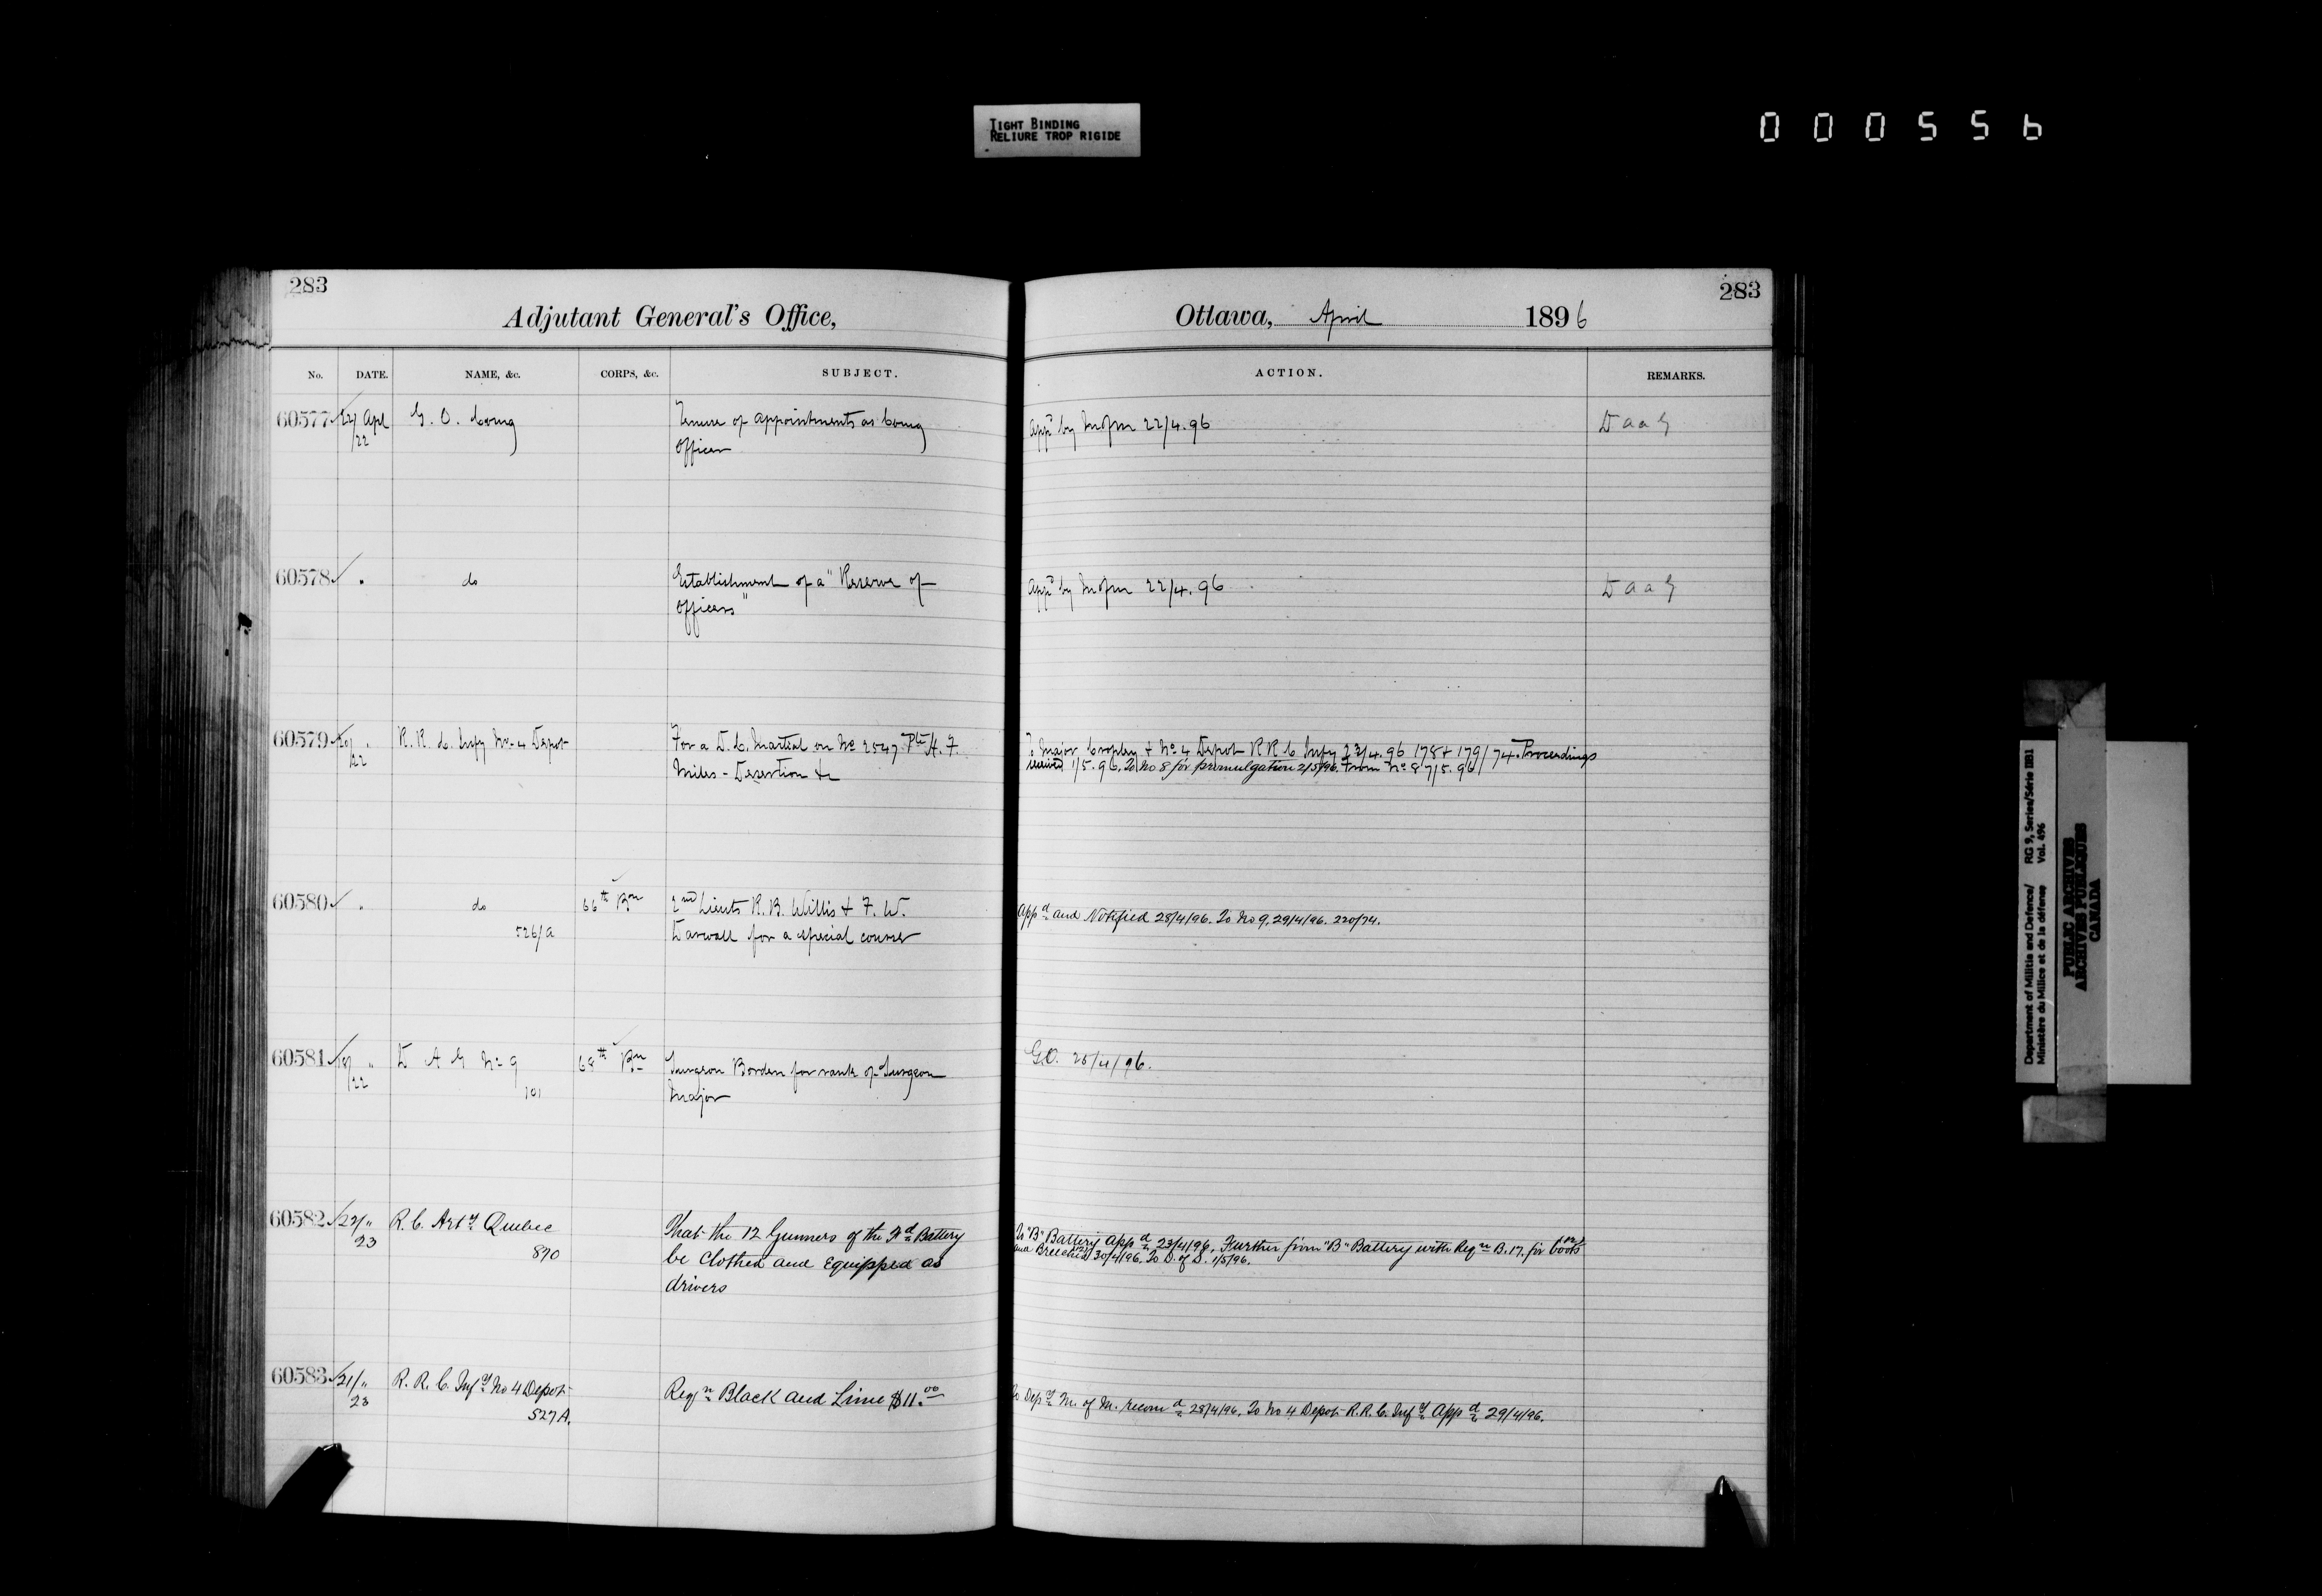 TIGHT BINDING
RELIURE TROP RIGIDE
000556
283
Adjutant General's Office,
No. DATE. NAME, &c. CORPS, &c. SUBJECT.
60577 22/ Apl G. O. Comg Tenure of appointments as Comg
/22 Officer
60578 " do Establishment of a "Reserve of
Officers"
60579 20/ " R. R. C. Infy No 4 Depot For a D. C. Martial on No 2547 Pte H. F.
22 Miles - Desertion &c
60580 " do 66th Bn 2nd Lieuts R. B. Willis & F. W.
526/A Darwall for a special course
60581 18/ " D A G No 9 68th Bn Surgeon Borden for rank of Surgeon
/22 101 Major
60582 22/ " R. C. Arty Quebec That the 12 Gunners of the Fd Battery
23 870 be Clothed and Equipped as
drivers
60583 21/ " R. R. C. Infy No 4 Depot Reqn Black and Lime $11.00
23 527A.
283
Ottawa, April 1896
ACTION. REMARKS.
Appd by M of M 22/4.96 D a a G
Appd by M of M 22/4.96 D a a G
To Major Cropley & No 4 Depot R R C Infy 23/4.96 178 & 179/74. Proceedings
received 1/5.96. To No 8 for promulgation 2/5/96. From No 8 7/5.96
Appd and Notified 28/4/96. To No 9. 29/4/96. 220/74.
G.O. 25/4/96.
To "B" Battery Appd 23/4/96. Further from "B" Battery with Reqn B. 17. for boots
and Breeches 30/4/96. To D. of S. 1/5/96.
To Depy M. of M. recomd 28/4/96. To No 4 Depot R. R. C. Infy Appd 29/4/96.
Department of Militia and Defence/
Ministère du Milice et de la défense
RG 9, Series/Série IIB1
Vol. 496
PUBLIC ARCHIVES
ARCHIVES PUBLIQUES
CANADA